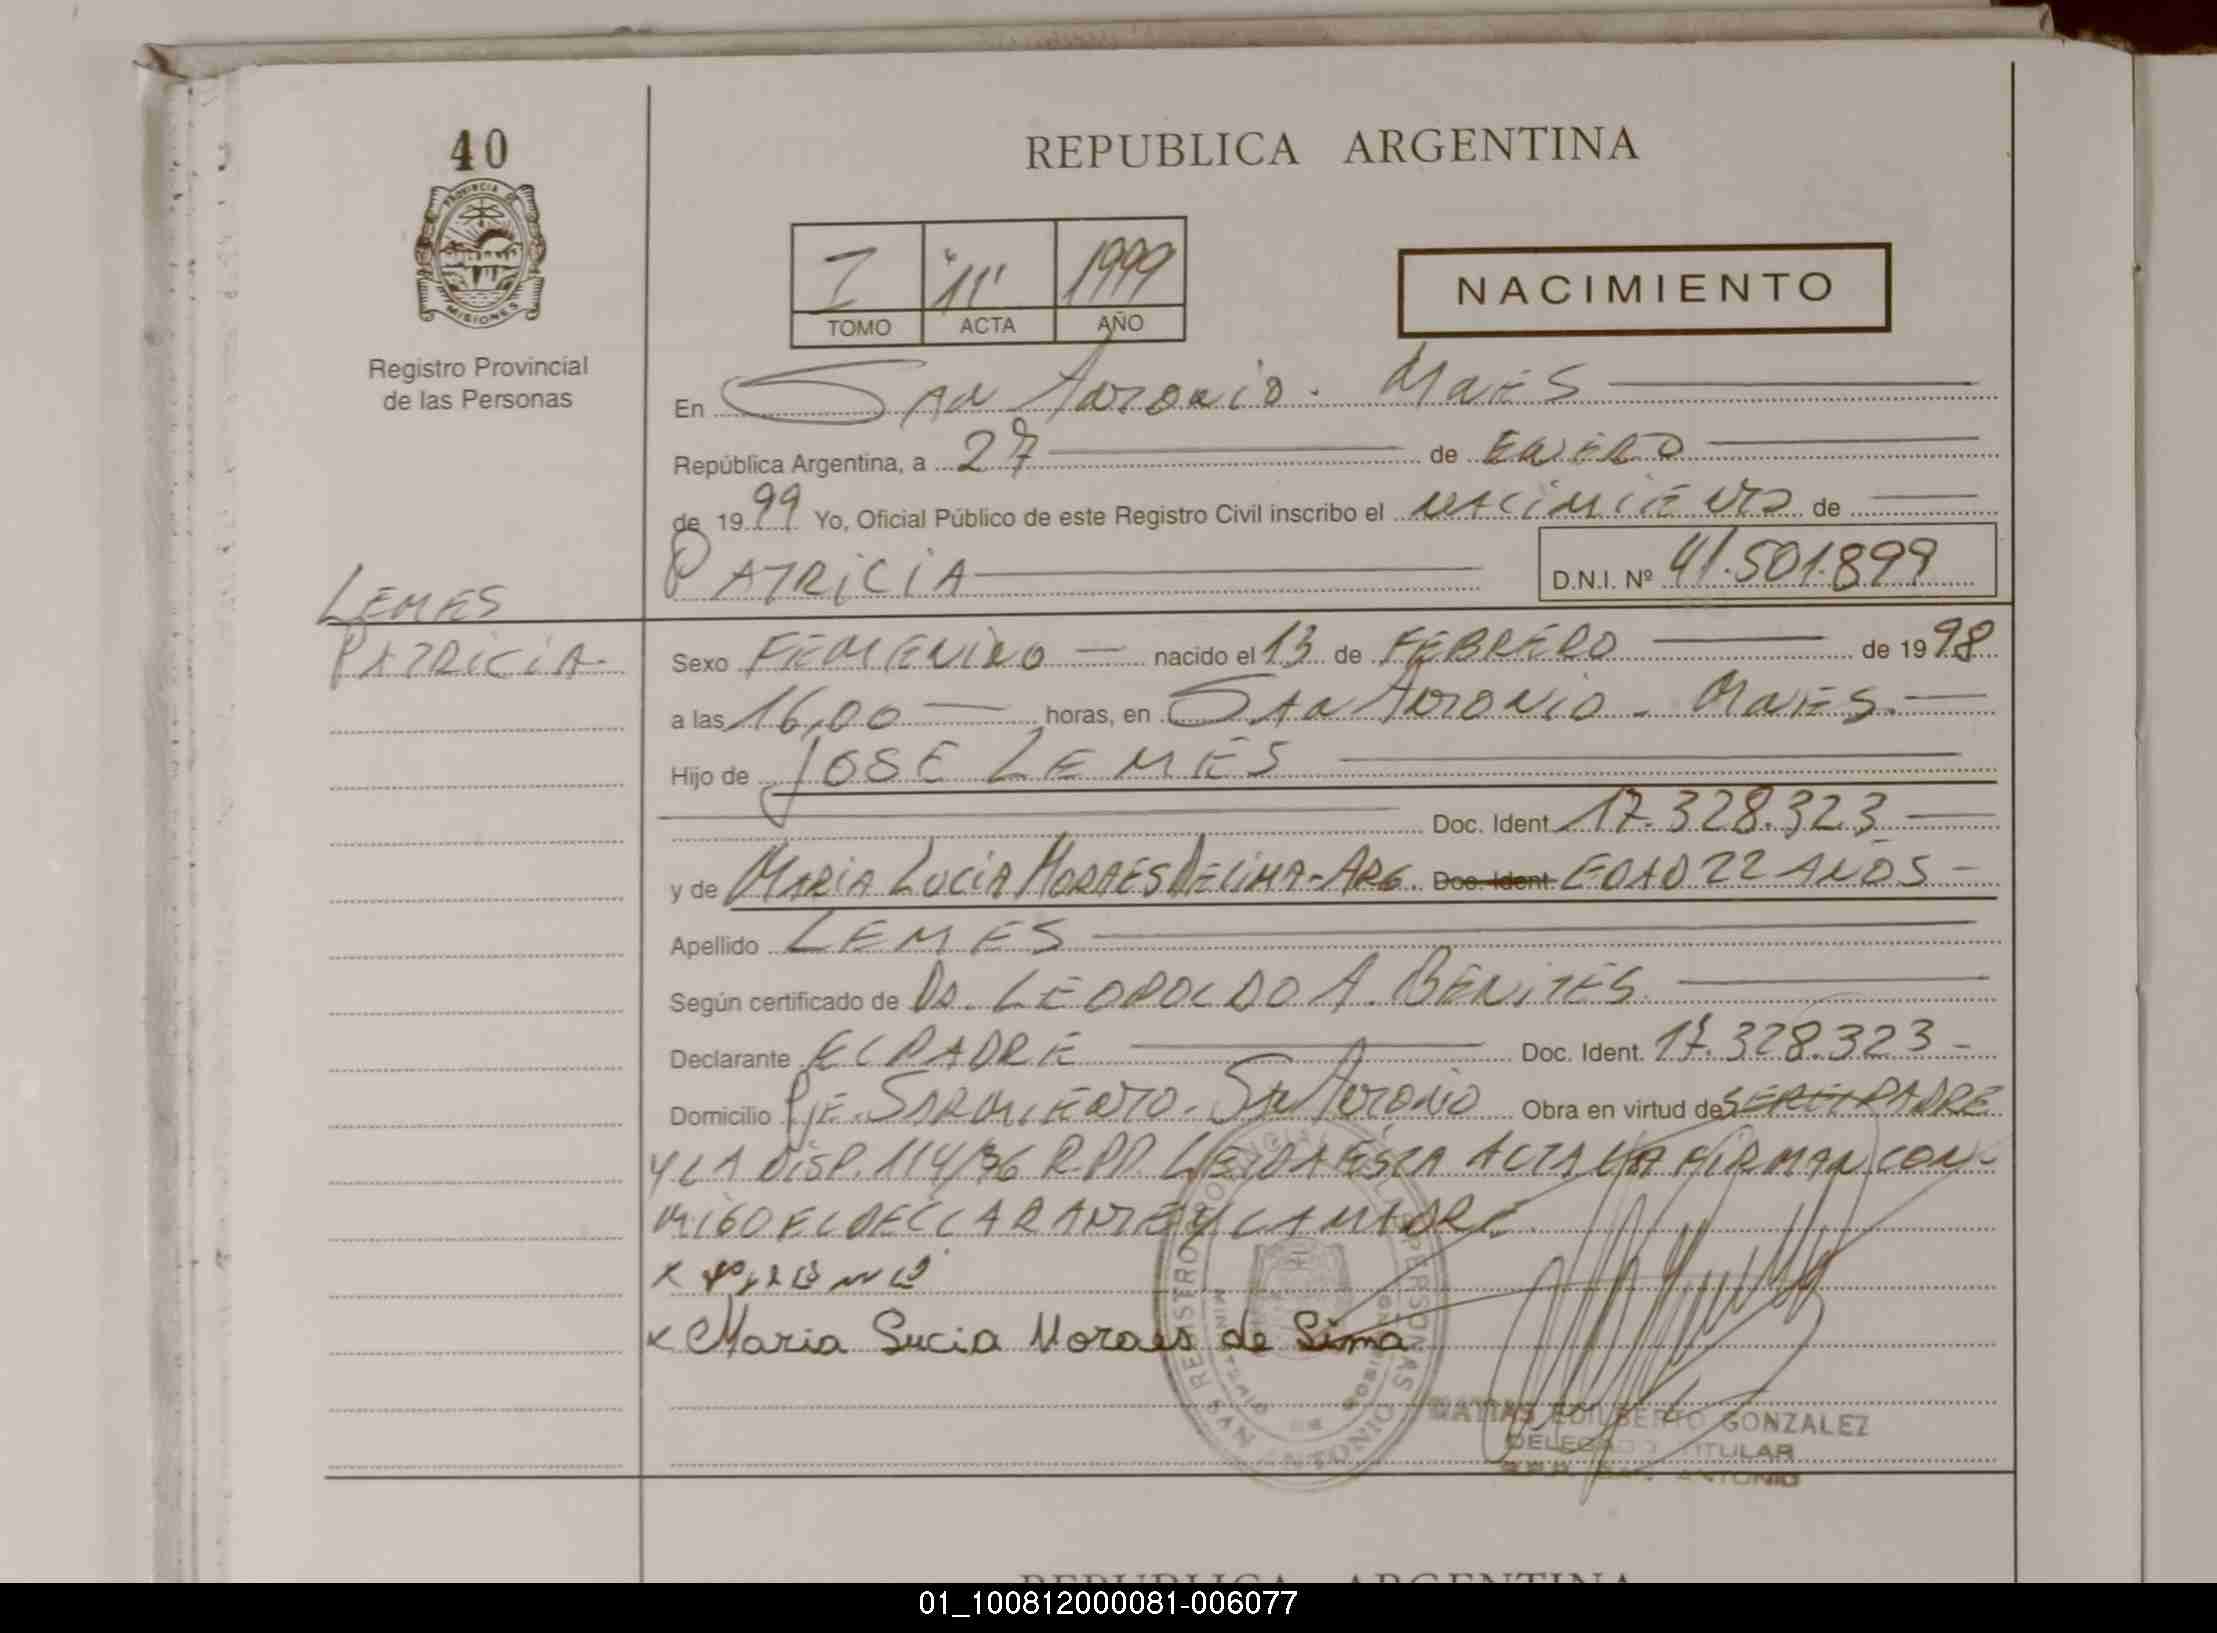 40
PROVINCIA DE
MISIONES
Registro Provincial
de las Personas
REPUBLICA ARGENTINA
I "11" 1999
TOMO ACTA AÑO
NACIMIENTO
En SAN ANTONIO - MNES
República Argentina, a 27 de ENERO
de 1999 Yo, Oficial Público de este Registro Civil inscribo el NACIMIENTO de
PATRICIA D.N.I. Nº 41.501.899
LEMES
PATRICIA-
Sexo FEMENINO nacido el 13 de FEBRERO de 1998
a las 16,00 horas, en SAN ANTONIO - MNES.
Hijo de JOSE LEMES
Doc. Ident 17.328.323
y de MARIA LUCIA MORAES DELIMA-ARG. Doc. Ident EDAD 22 AÑOS -
Apellido LEMES
Según certificado de DR. LEOPOLDO A. BENITES.
Declarante EL PADRE Doc. Ident. 17.328.323 -
Domicilio PJE. SARMIENTO - SAN ANTONIO Obra en virtud de SER EL PADRE
Y LA DISP. 114/96 R.P.P. LEIDA ESTA ACTA LA FIRMAN CON-
MIGO EL DECLARANTE Y LA MADRE.
x
x Maria Lucia Moraes de Lima
REGISTRO PROVINCIAL DE LAS PERSONAS
SAN ANTONIO
MATIAS EDILBERTO GONZALEZ
DELEGADO TITULAR
R.P.P. SAN ANTONIO
REPUBLICA ARGENTINA
01_100812000081-006077